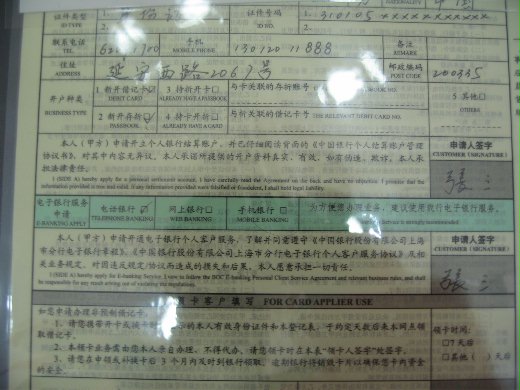 证件类型 ID TYPE 1. 证件号码 ID NO. 1. 310105××××××××××
2. 2.
联系电话 TEL. 手机 MOBILE PHONE 13012011888 备注 REMARK
住址 ADDRESS 延安西路-2067号 邮政编码 POST CODE 200335
开户种类 BUSINESS TYPE 1 新开借记卡☑ DEBIT CARD 3 持折开卡□ ALREADY HAVE A PASSBOOK 与卡关联的存折账号 5 其他□ OTHERS
2 新开存折☑ PASSBOOK 4 持卡开折□ ALREADY HAVE A CARD 与折关联的借记卡号 THE RELEVANT DEBIT CARD NO.
本人（甲方）申请开立个人银行结算账户，并已仔细阅读背面的《中国银行个人结算账户管理 申请人签字
协议书》，对其中内容无异议，本人承诺所提供的开户资料真实、有效，如有伪造、欺诈，本人承 CUSTOMER (SIGNATURE)
担法律责任。 張三
I (SIDE A) hereby apply for a personal settlement account, I have carefully read the Agreement on the back and have no objection. I promise that the
information provided is true and valid. If any information provided were falsified or fraudulent, I shall hold legal liability.
电子银行服务申请 E-BANKING APPLY 电话银行☑ TELEPHONE BANKING 网上银行□ WEB BANKING 手机银行□ MOBILE BANKING 为方便您办理业务，建议使用我行电子银行服务。
本人（甲方）申请开通电子银行个人客户服务，了解并同意遵守《中国银行股份有限公司上海 申请人签字
市分行电子银行章程》、《中国银行股份有限公司上海市分行电子银行个人客户服务协议》及相 CUSTOMER (SIGNATURE)
关业务规定。对因违反规定/协议而造成的损失和后果，本人愿意承担一切责任。 張三
I (SIDE A) hereby apply for E-banking Service. I vow to follow the BOC E-banking Personal Client Service Agreement and relevant business rules, and shall
be responsible for any reach arising out of violating the regulations.
领卡客户填写 FOR CARD APPLIER USE
如您申请办理非预制借记卡，
1、请您携带开卡或换卡 本人有效身份证件和本登记表，于约定天数后来本网点领 领卡时间：
取借记卡。 □7天后
2、本领卡业务需由您本人亲自办理，不得代办，请您领卡时在本表“领卡人签字”处签字。 □其他（ ）天后
3、请您在申领或补换卡后 3 个月内及时到银行领取，逾期银行将销毁卡片以确保您卡内资金
的安全。